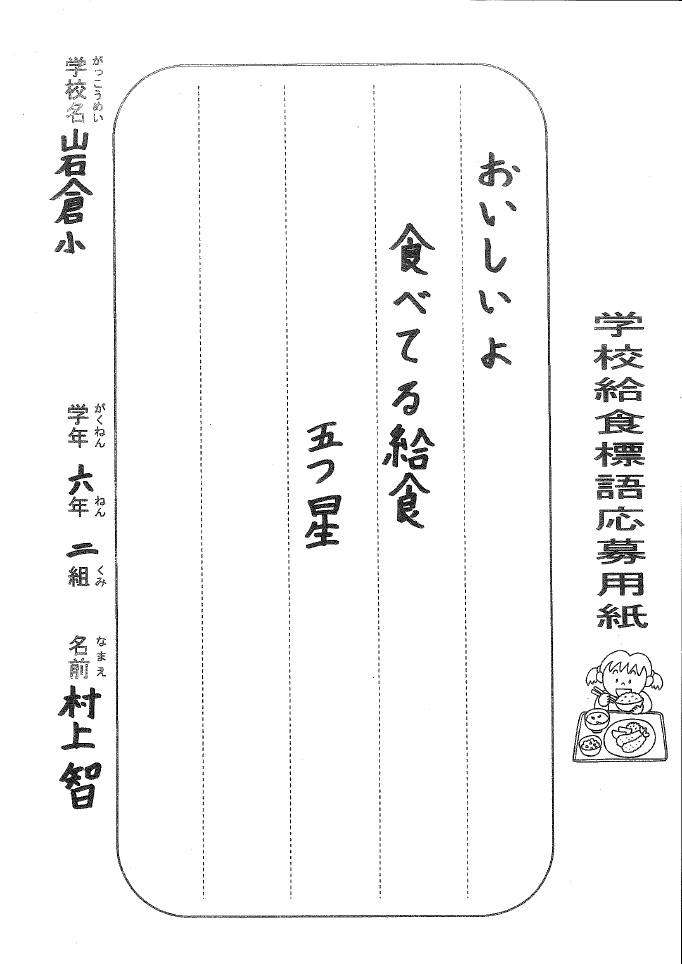 学校給食標語応募用紙
おいしいよ
食べてる給食
五つ星
学校名 がっこうめい 山石倉小
学年 がくねん 六年 ねん 二組 くみ 名前 なまえ 村上智